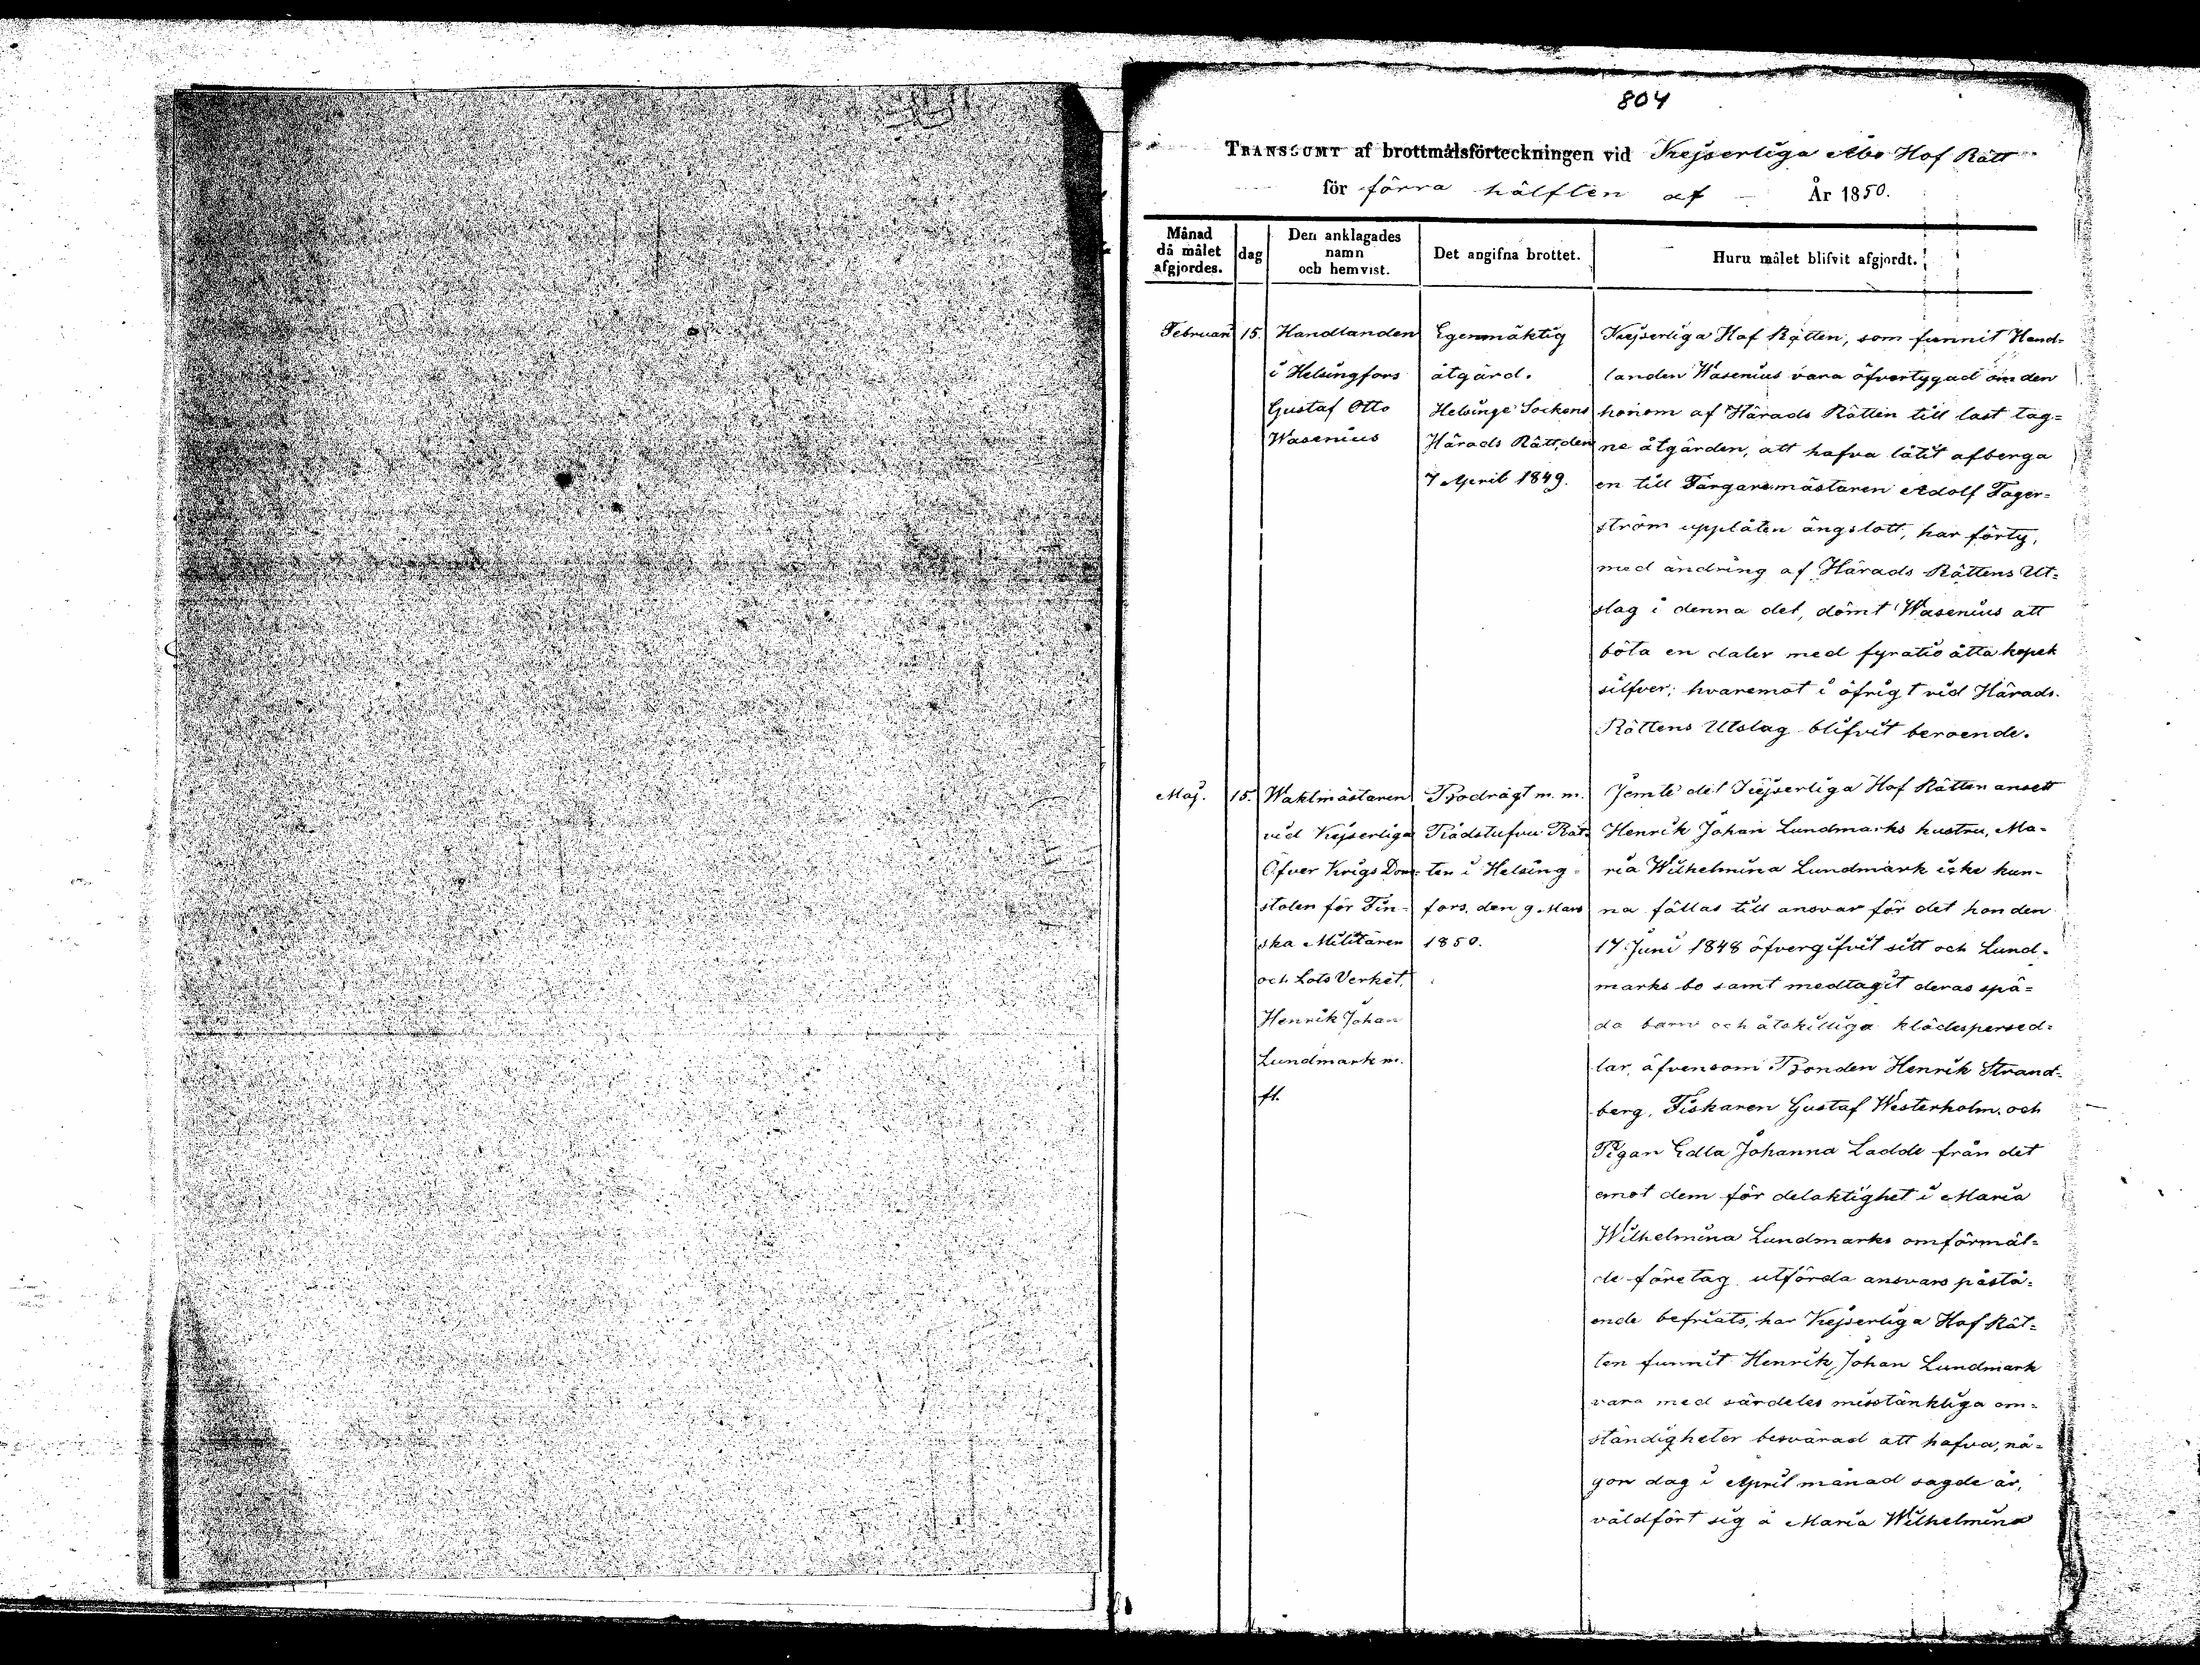 804
TRANSUMT af brottmålsförteckningen vid Kejserliga Åbo Hof Rätt
för förra hälften af År 1850.
Månad
då målet
afgjordes.
dag
Den anklagades
namn
och hemvist.
Det angifna brottet.
Huru målet blifvit afgjordt.
Februari
15.
Handlanden
i Helsingfors
Gustaf Otto
Wasenius
Egenmäktig
åtgärd.
Helsinge Sockens
Härads Rätt, den
7 April 1849.
Kejserliga Hof Rätten, som funnit Hand-
landen Wasenius vara öfvertygad om den
honom af Härads Rätten till last tag-
ne åtgärden, att hafva låtit afberga
en till Färgaremästaren Adolf Fager-
ström upplåten ängslott, har förty,
med ändring af Härads Rättens Ut-
slag i denna del, dömt Wasenius att
böta en daler med fyratio åtta kopek
silfver; hvaremot i öfrigt vid Härads
Rättens Utslag blifvit beroende.
Maj.
15.
Waktmästaren
vid Kejserliga
Öfver Krigs Dom-
stolen för Fin-
ska Militären
och Lots Verket,
Henrik Johan
Lundmark m.
fl.
Bodrägt m. m.
Rådstufvu Rät-
ten i Helsing-
fors, den 9 Mars
1850.
Jemte det Kejserliga Hof Rätten ansett
Henrik Johan Lundmarks hustru, Ma-
ria Wilhelmina Lundmark icke kun-
na fällas till ansvar för det hon den
17 Juni 1848 öfvergifvit sitt och Lund-
marks bo samt medtagit deras spä-
da barn och åtskilliga klädespersed-
lar, äfvensom Bonden Henrik Strand-
berg, Fiskaren Gustaf Westerholm och
Pigan Edla Johanna Ladde från det
emot dem för delaktighet i Maria
Wilhelmina Lundmarks omförmäl-
de företag utförda ansvars påstå-
ende befriats, har Kejserliga Hof Rät-
ten funnit Henrik Johan Lundmark
vara med särdeles misstänkliga om-
ständigheter besvärad att hafva, nå-
gon dag i April månad sagde år,
våldfört sig å Maria Wilhelmina